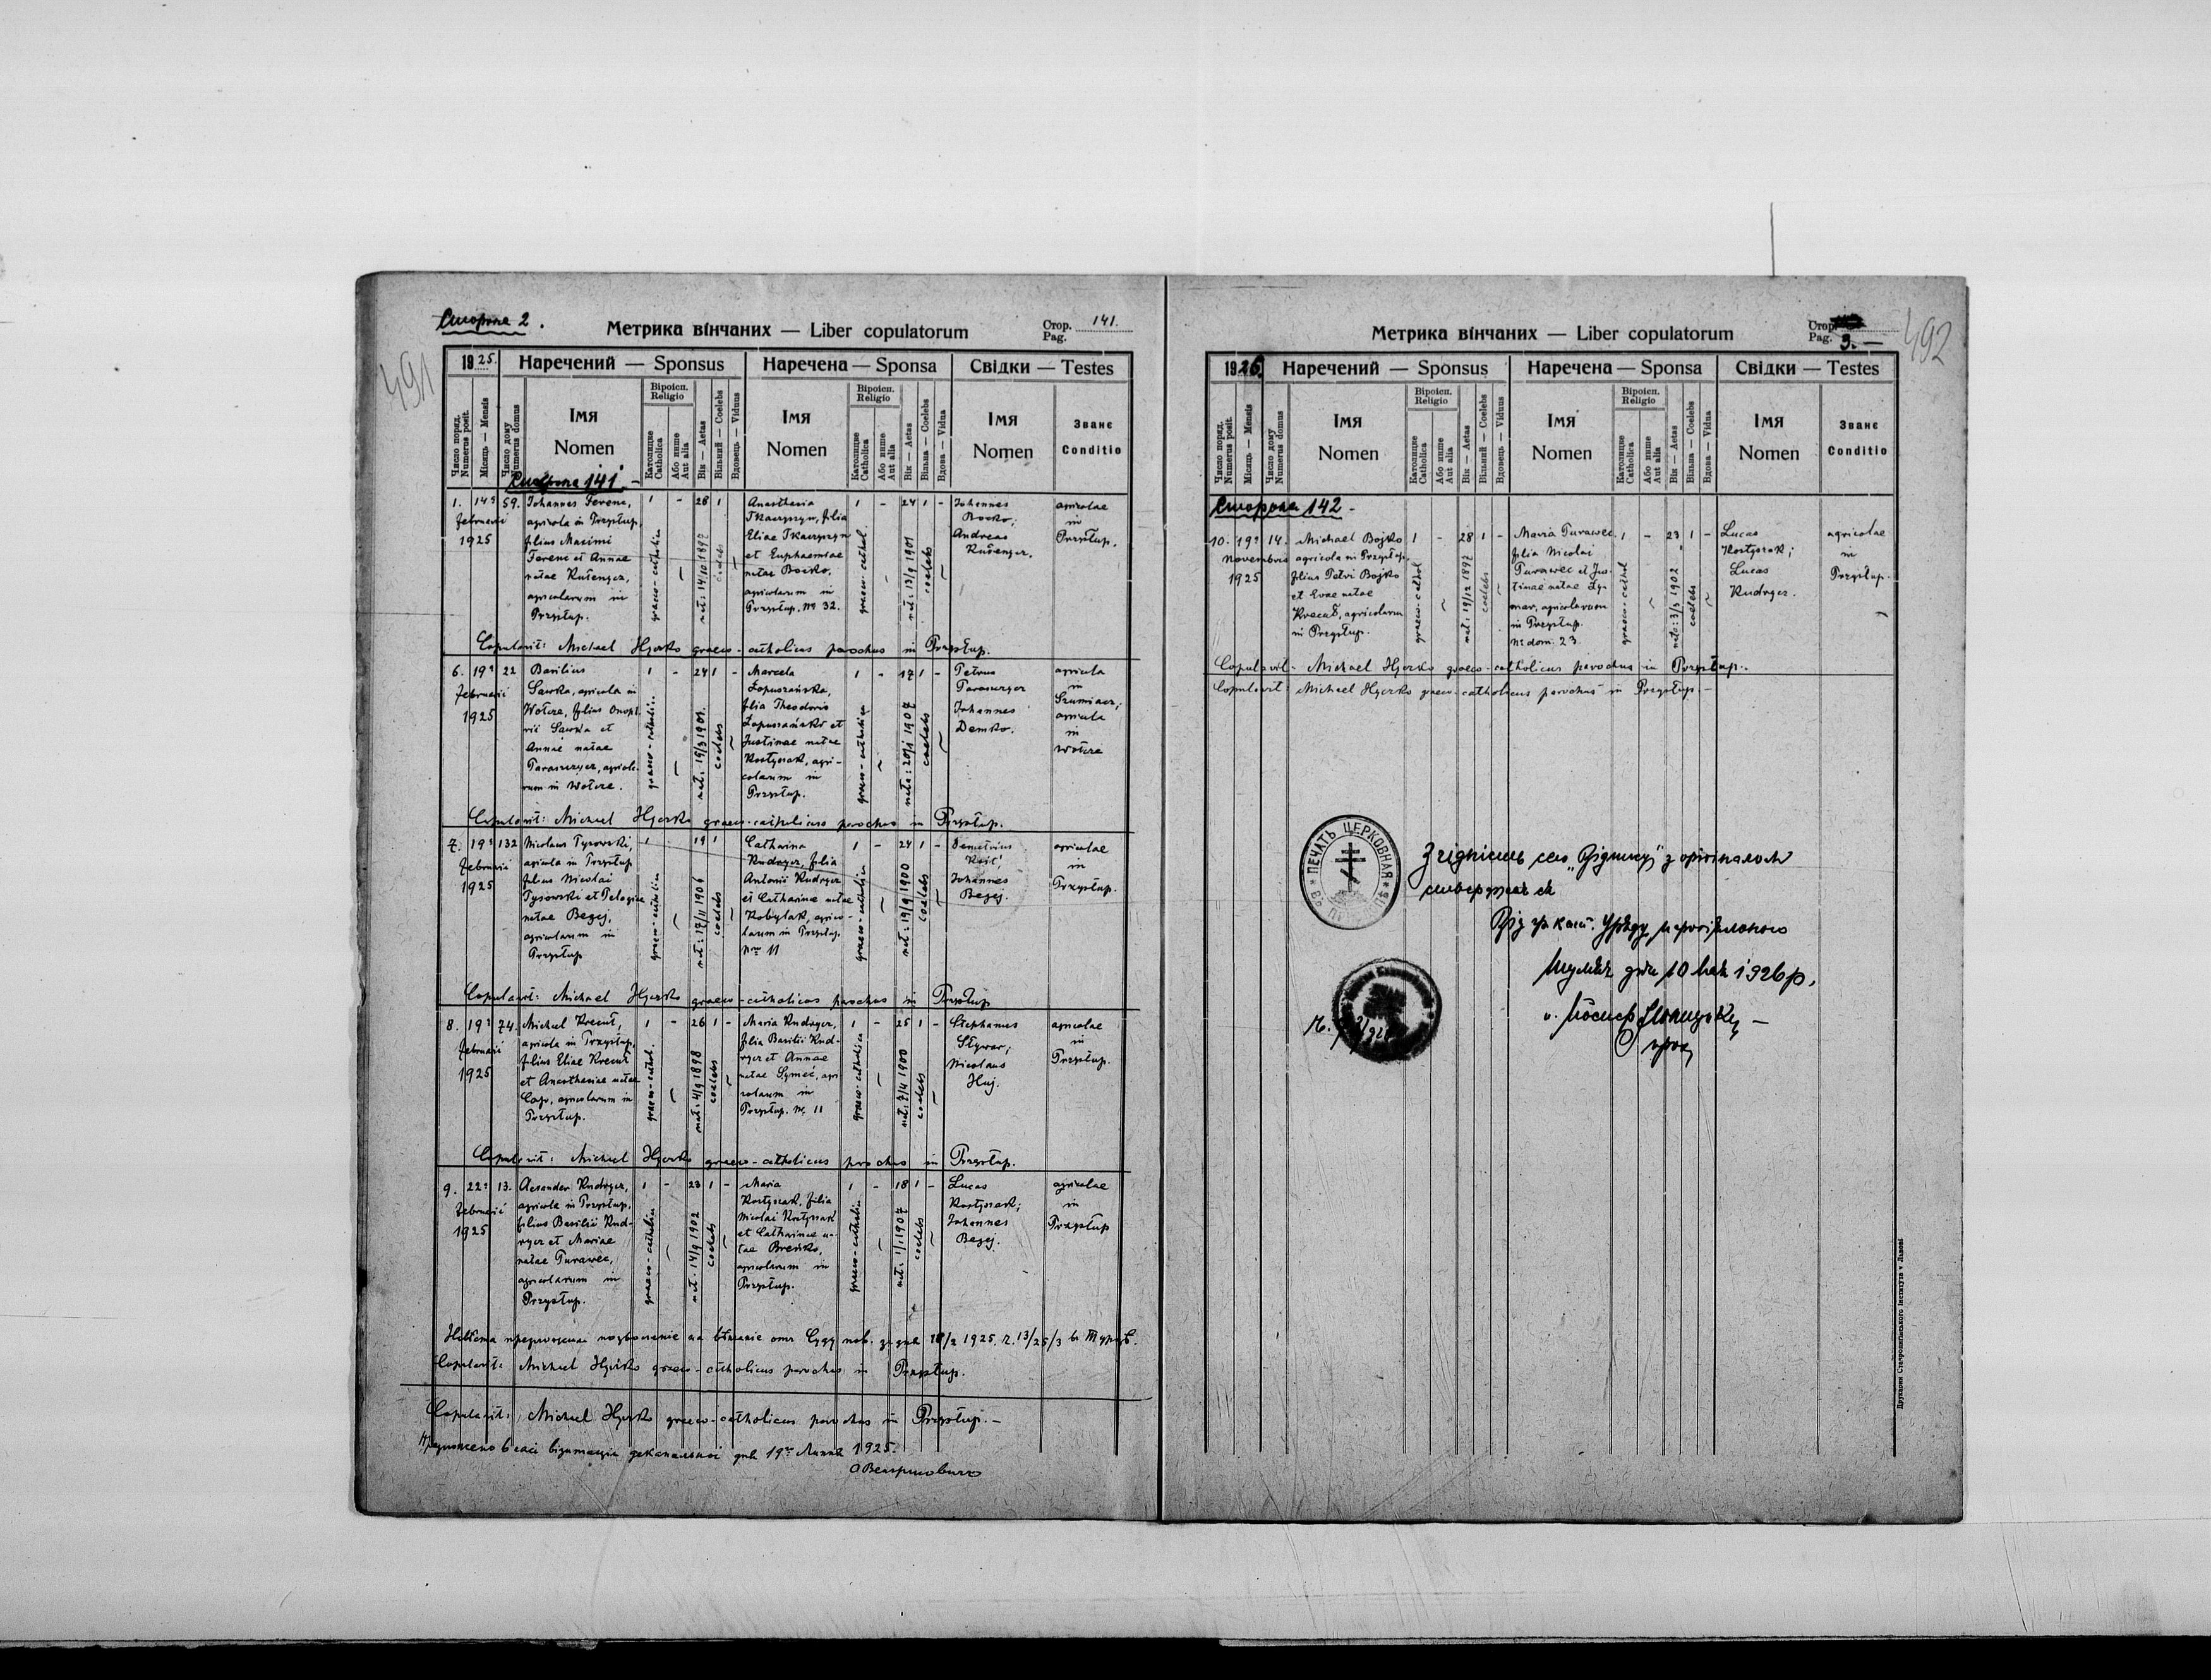 Сторона 2.
Метрика вінчаних — Liber copulatorum
Стор. Pag. 141.
491
1925. Наречений — Sponsus Наречена — Sponsa Свідки — Testes
Число поряд. Numerus posit.
Місяць — Mensis
Число дому Numerus domus
Імя Nomen
Віроісп. Religio
Католицке Catholica
Або инше Aut alia
Вік — Aetas
Вільний — Coelebs
Вдовець — Viduus
Імя Nomen
Віроісп. Religio
Католицке Catholica
Або инше Aut alia
Вік — Aetas
Вільна — Coelebs
Вдова — Vidua
Імя Nomen
Званє Conditio
Сторона 141. —
1.
14ª Februarii 1925
59.
Johannes Ferenc,
agricola in Przysłup,
filius Maximi
Ferenc et Annae
natae
agricolarum in
Przysłup.
1
graeco-catholica
-
28
nat: 14/10 1897
1
coelebs
Anasthasia
Tkaczyszyn, filia
Eliae Tkaczyszyn
et Euphaemiae
natae Boćko,
agricolarum in
Przysłup, № 32.
1
graeco-cathol
-
24
nat: 13/9 1901
1
coelebs
-
Johannes
Boćko;
Andreas
agricolae
in
Przysłup.
Copulavit: Michael Hjorko graeco-catholicus parochus in Przysłup.
6.
19ª Februarii 1925
22
Basilius
Sawka, agricola in
Wołcze, filius Onoph-
rii Sawka et
Annae natae
agricola-
rum in Wołcze.
1
graeco-catholica
-
24
nat: 15/3 1901.
1
coelebs
-
Marcela
Łopuszańska,
filia Theodoris
Łopuszański et
Justinae natae
Kostyszak, agri-
colarum in
Przysłup.
1
graeco-catholica
-
17
nata: 20/1 1907
1
coelebs
-
Petrus
Johannes
Demko.
agricola
in
Szumiacz;
agricola
in
Wołcze
Copulavit: Michael Hjorko graeco-catholicus parochus in Przysłup.
7.
19ª Februarii 1925
132
Nicolaus Tysowski,
agricola in Przysłup
filius Nicolai
Tysowski et Pelagiae
natae Begej,
agricolarum in
Przysłup
1
graeco-catholica
19
nat: 17/11 1906
1
coelebs
Catharina
Kudryez, filia
Antonii Kudryez
et Catharinae natae
Kobylak, agrico-
larum in Przysłup.
Nro 11
1
graeco-catholica
-
24
nat: 19/9 1900
1
coelebs
-
Demetrius
Johannes
Begej.
agricolae
in
Przysłup.
Copulavit: Michael Hjorko graeco-catholicus parochus in Przysłup
8.
19ª Februarii 1925
74.
Michael Krecut,
agricola in Przysłup,
filius Eliae Krecut
et Anasthasiae natae
Cap, agricolarum in
Przysłup.
1
graeco-cathol.
-
26
nat: 4/9 1898
1
coelebs
-
Maria Kudryez,
filia Basilii Kud-
ryez et Annae
natae Symeć, agri
colarum in
Przysłup. № 11
1
graeco-catholica
-
25
nat: 7/4 1900
1
coelebs
-
Stephanus
Nicolaus
Huj.
agricolae
in
Przysłup.
Copulavit: Michael Hjorko graeco-catholicus parochus in Przysłup.
9.
22ª Februarii 1925
13.
Alexander Kudryez,
agricola in Przysłup,
filius Basilii Kud-
ryez et Mariae
natae Turawec,
agricolarum in
Przysłup.
1
graeco-catholica
-
23
nat. 14/9 1902
1
coelebs
-
Maria
Kostyszak, filia
Nicolai Kostyszak
et Catharinae na-
tae Breńko,
agricolarum in
Przysłup.
1
graeco-catholica
-
18
nat: 1/1 1907
1
coelebs
-
Lucas
Kostyszak;
Johannes
Begej.
agricolae
in
Przysłup
Невіста предложила позволение на вінчание отъ Суду пов. з дня 18/2 1925. Ч. 13/25/3 въ Турцѣ.
Copulavit: Michael Hjorko graeco-catholicus parochus in Przysłup.
Copulavit: Michael Hjorko graeco-catholicus parochus in Przysłup. —
Предложено въ часі візитациі деканальної дня 19го Липня 1925.
Метрика вінчаних — Liber copulatorum
Стор. Pag. 3. —
492
1926. Наречений — Sponsus Наречена — Sponsa Свідки — Testes
Число поряд. Numerus posit.
Місяць — Mensis
Число дому Numerus domus
Імя Nomen
Віроісп. Religio
Католицке Catholica
Або инше Aut alia
Вік — Aetas
Вільний — Coelebs
Вдовець — Viduus
Імя Nomen
Віроісп. Religio
Католицке Catholica
Або инше Aut alia
Вік — Aetas
Вільна — Coelebs
Вдова — Vidua
Імя Nomen
Званє Conditio
Сторона 142 —
10.
19ª Novembris 1925
14.
Michael Bojko
agricola in Przysłup,
filius Petri Bojko
et Evae natae
Krecut, agricolarum
in Przysłup.
1
graeco-cathol
-
28
nat: 19/12 1897
1
coelebs
-
Maria Turawec,
filia Nicolai
Turawec et Jus-
tinae natae Zy-
mar, agricolarum
in Przysłup.
№ dom. 23.
1
graeco-cathol
-
23
nata: 3/3 1902
1
coelebs
-
Lucas
Kostyszak;
Lucas
Kudryez.
agricolae
in
Przysłup.
Copulavit: Michael Hjorko graeco-catholicus parochus in Przysłup.
Copulavit: Michael Hjorko graeco-catholicus parochus in Przysłup. —
ПЕЧАТЬ ЦЕРКОВНАЯ
Згідність сего „Відпису" з оріґіналом
стверджає ся
Від гр. кат. Уряду парохіяльного
Шумяч дня 10 1926 р.
о. Йосиф
Друкарня Ставропигійського Інститута у Львові